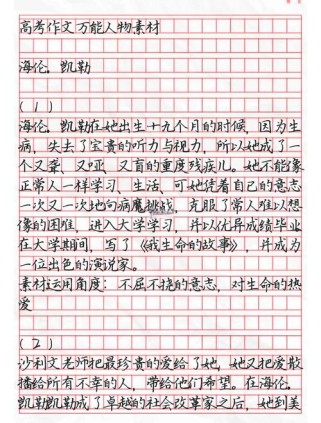 高考作文万能人物素材
海伦。凯勒
(1)
海伦。凯勒在她出生十九个月的时候，因为生
病，失去了宝贵的听力与视力，所以她成了一
个又聋、又哑、又盲的重度残疾儿。她不能像
正常人一样学习、生活，可她凭着自己的意志
一次又一次地向病魔挑战，克服了常人难以想
像的困难，进入大学学习，并以优异成绩毕业
在大学期间，写了《我生命的故事》，并成为
一位出色的演说家。
素材运用角度：不屈不挠的意志，对生命的热
爱
(2)
沙利文老师把最珍贵的爱给了她，她又把爱散
播给所有不幸的人，带给他们希望。在海伦。
凯勒凯勒成了卓越的社会改革家之后，她到美